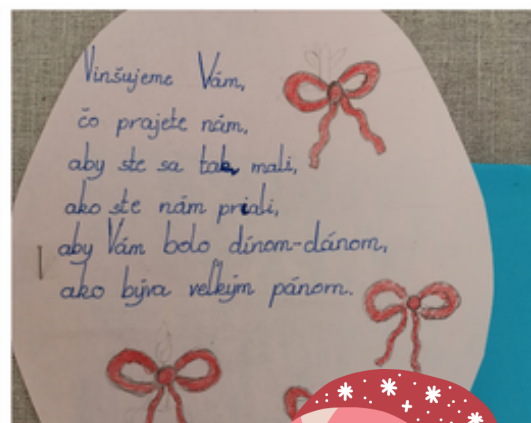 Vinšujeme Vám,
čo prajete nám,
aby ste sa tak mali,
ako ste nám priali,
aby Vám bolo dínom-dánom,
ako býva veľkým pánom.